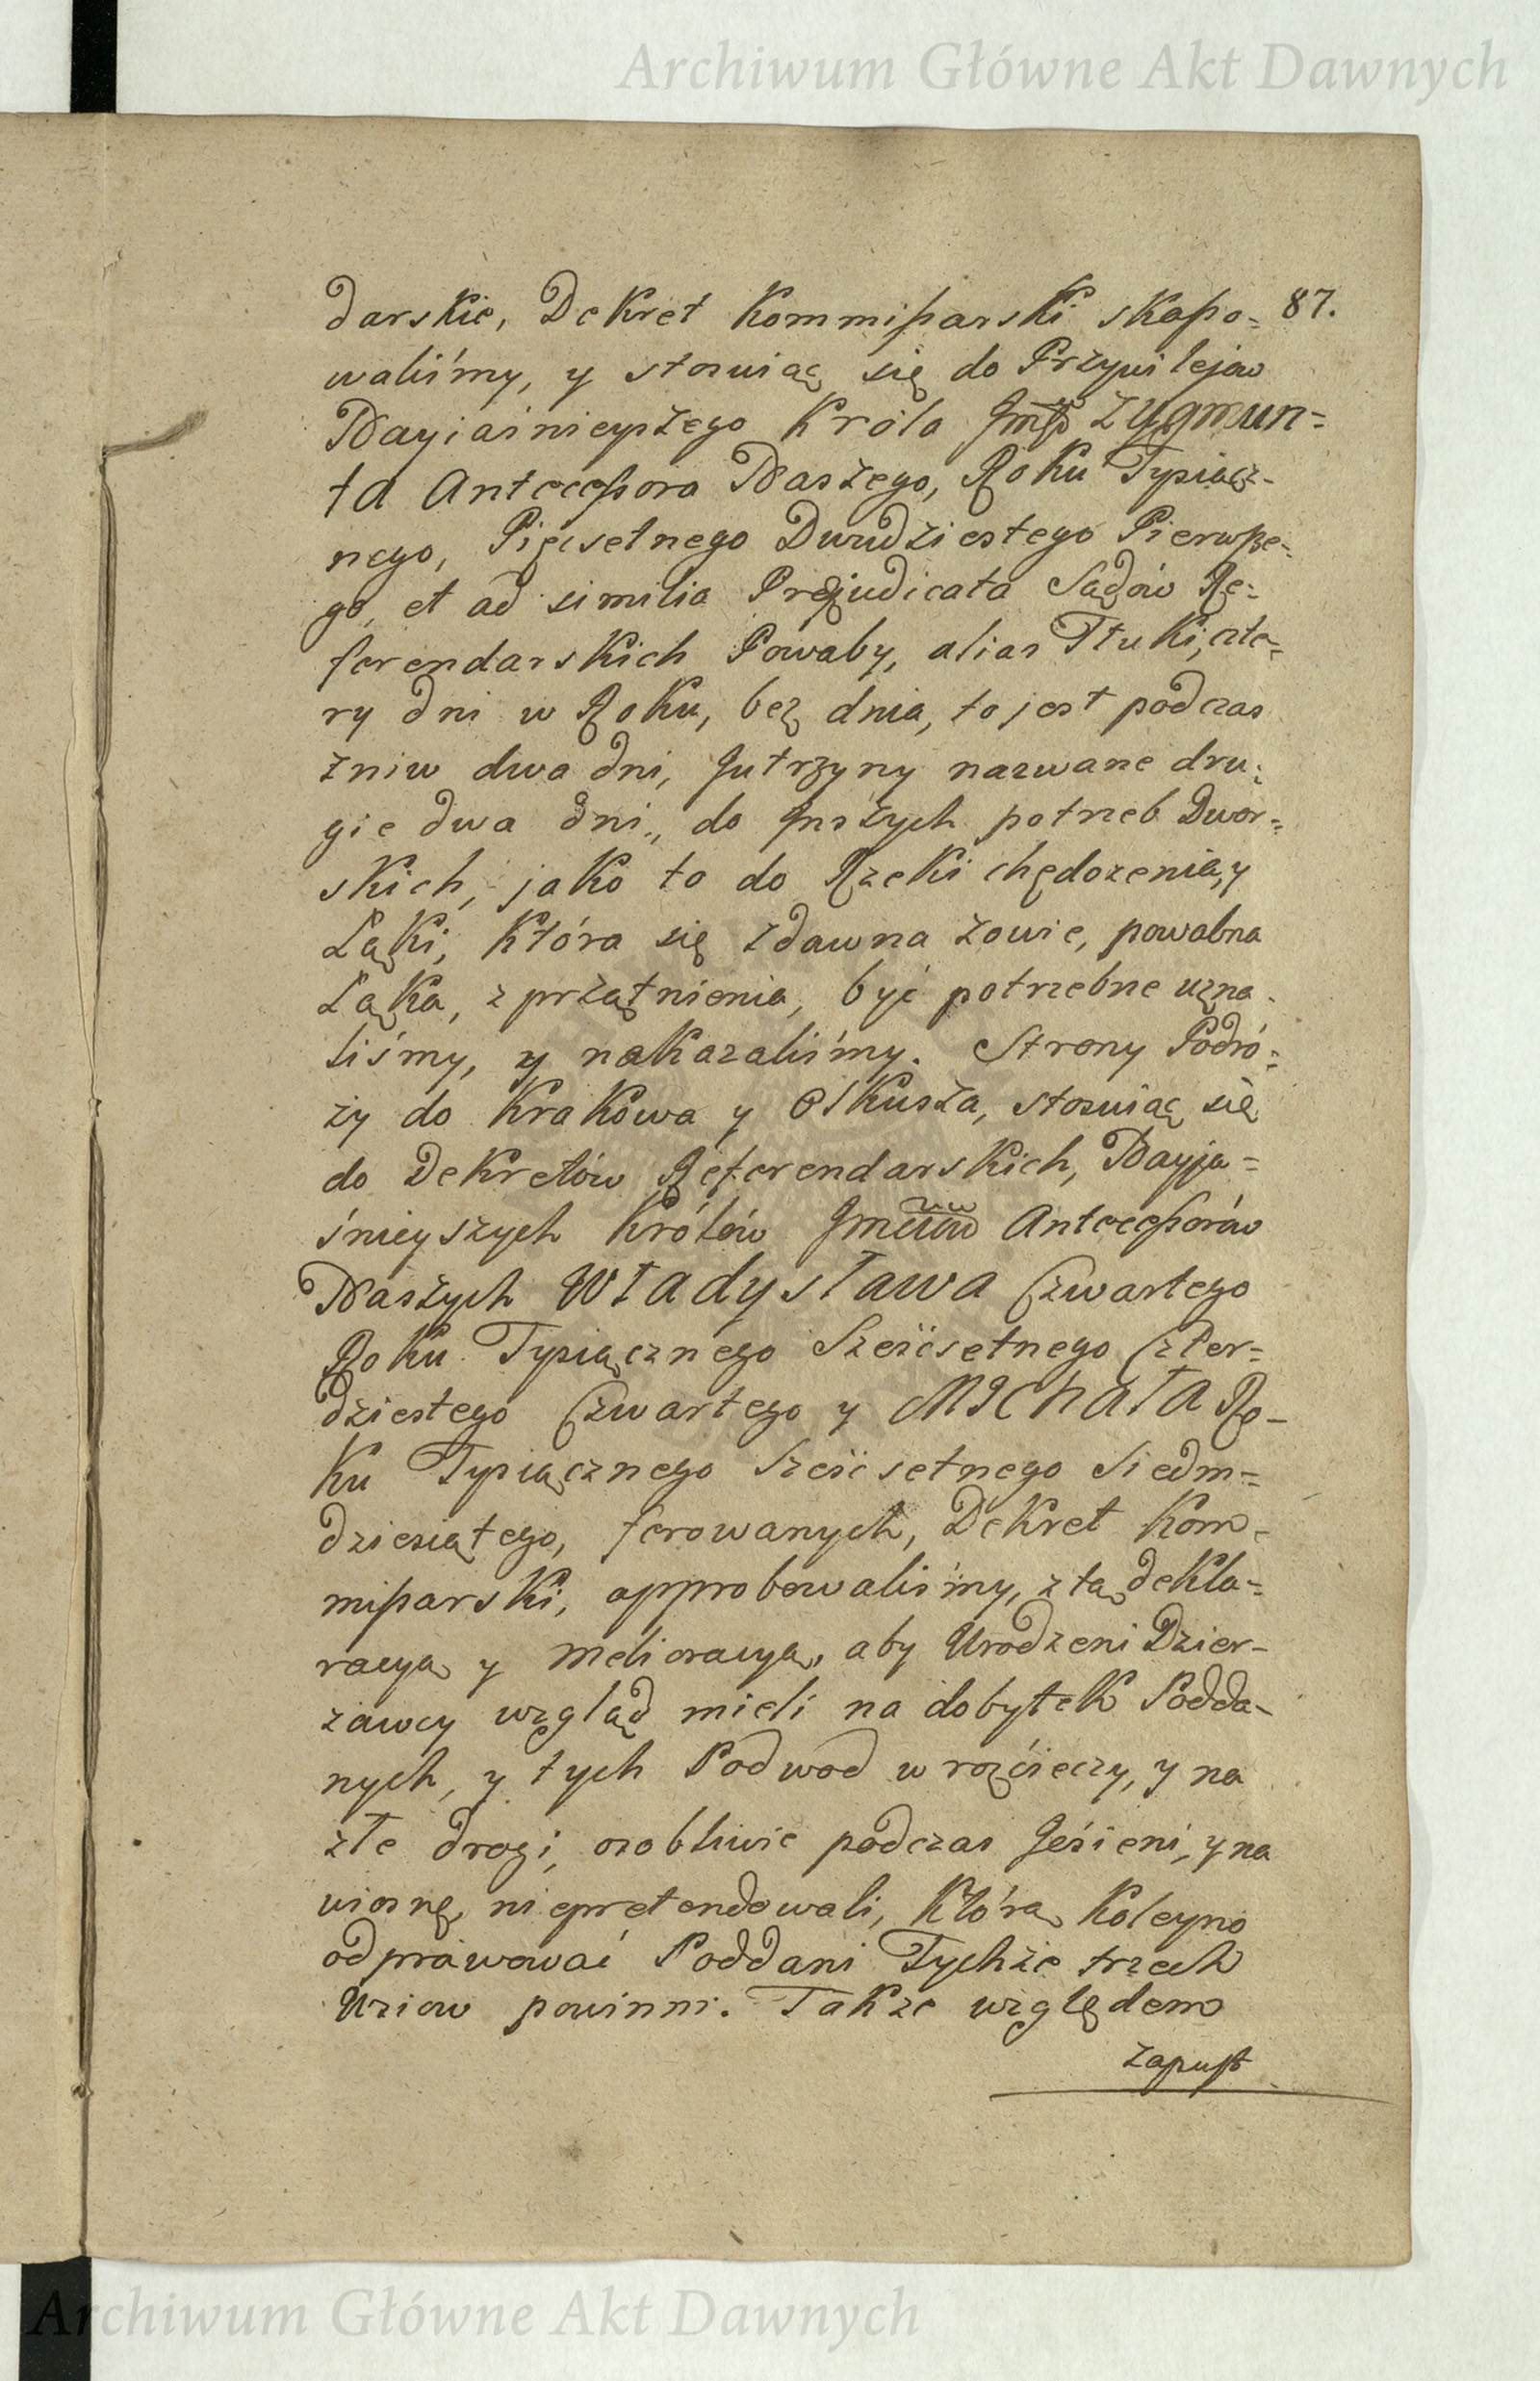 Archiwum Główne Akt Dawnych
87.
darskie, Dekret Kommißarski skaßo=
waliśmy, y stosuiąc się do Przywilejow
Nayiaśnieyszego Króla Jmśći Zygmun=
ta Antecessora Naszego, Roku Tysiącz-
nego, Pięćsetnego Dwudziestego Pierwsze=
go, et ad similia Præjudicata Sądów Re=
ferendarskich Powaby, alias Tłuki, czte=
ry dni w Roku, bez dnia, to jest podczas
żniw dwa dni, Jutrzyny nazwane dru=
gie dwa dni, do Jnszych potrzeb Dwor=
skich, jako to do Rzeki chędożenia, y
Łąki, która się zdawna zowie, powabna
Łąka, zprzątnienia, być potrzebne uzna-
liśmy, y nakazaliśmy. Strony Podró=
ży do Krakowa y Olkusza, stosuiąc się
do Dekretów Referendarskich, Nayja=
śnieyszych Królów Antecessorów
Naszych Władysława Czwartego
Roku Tysiącznego Sześćsetnego Czter=
dziestego Czwartego y Michała Ro-
ku Tysiącznego Sześćsetnego Siedm=
dziesiątego, ferowanych, Dekret Kom-
mißarski, approbowaliśmy, z tą dekla=
racyą y melioracyą, aby Urodzeni Dzier-
żawcy wzgląd mieli na dobytek Podda-
nych, y tych Podwod w rozcieczy, y na
złe drogi, osobliwie podczas Jesieni, y na
wiosnę, niepretendowali, którą koleyno
odprawować Poddani Tychże trzech
Wsiow powinni. Także względem
Zapust
Archiwum Główne Akt Dawnych